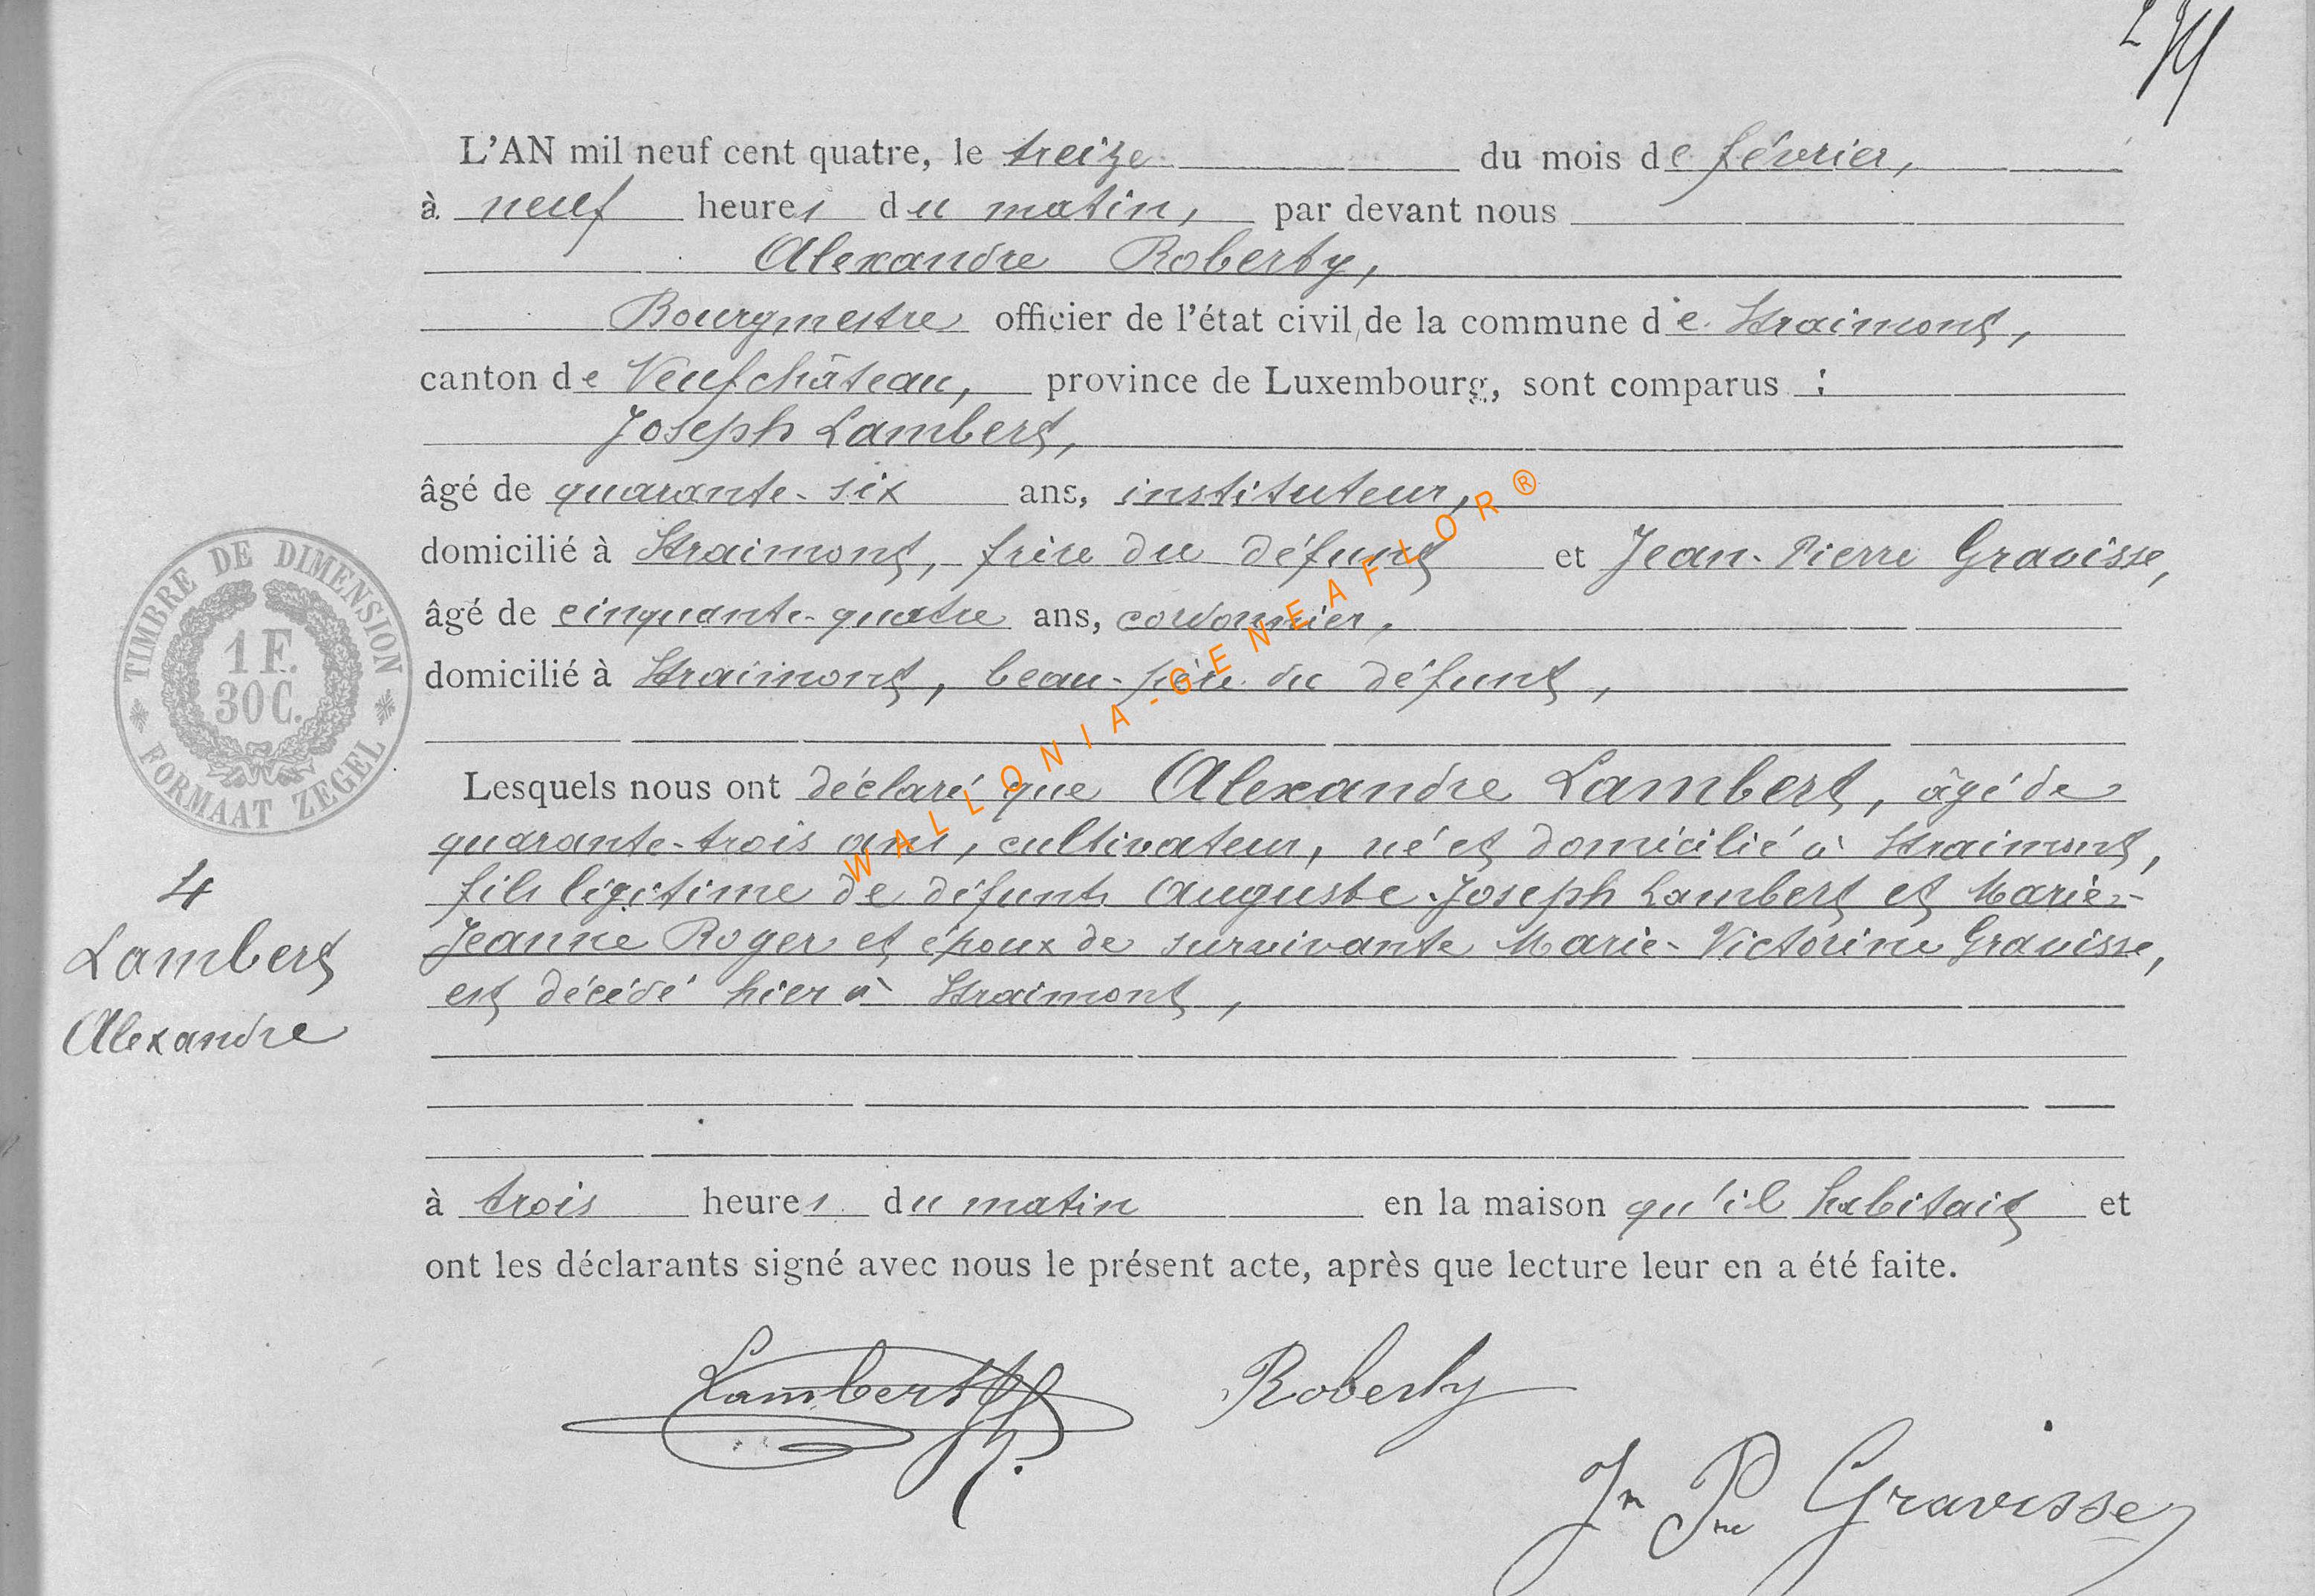 L'AN mil neuf cent quatre, le treize du mois de février,
à neuf heures du matin, par devant nous
Alexandre Roberty,
Bourgmestre officier de l'état civil de la commune de Straimont,
canton de Neufchâteau, province de Luxembourg, sont comparus :
Joseph Lambert,
âgé de quarante-six ans, instituteur,
domicilié à Straimont, frère du défunt et Jean-Pierre Gravisse,
âgé de cinquante-quatre ans, cordonnier,
domicilié à Straimont, beau-père du défunt,
TIMBRE DE DIMENSION
1 F.
30 C.
FORMAAT ZEGEL
Lesquels nous ont déclaré que Alexandre Lambert, âgé de
quarante-trois ans, cultivateur, né et domicilié à Straimont,
fils légitime de défunts Auguste-Joseph Lambert et Marie-
Jeanne Roger et époux de survivante Marie-Victorine Gravisse,
est décédé hier à Straimont,
4
Lambert
Alexandre
à trois heures du matin en la maison qu'il habitait et
ont les déclarants signé avec nous le présent acte, après que lecture leur en a été faite.
Lambert
Roberty
Jn Pre Gravisse
WALLONIA-GENEAFLOR®